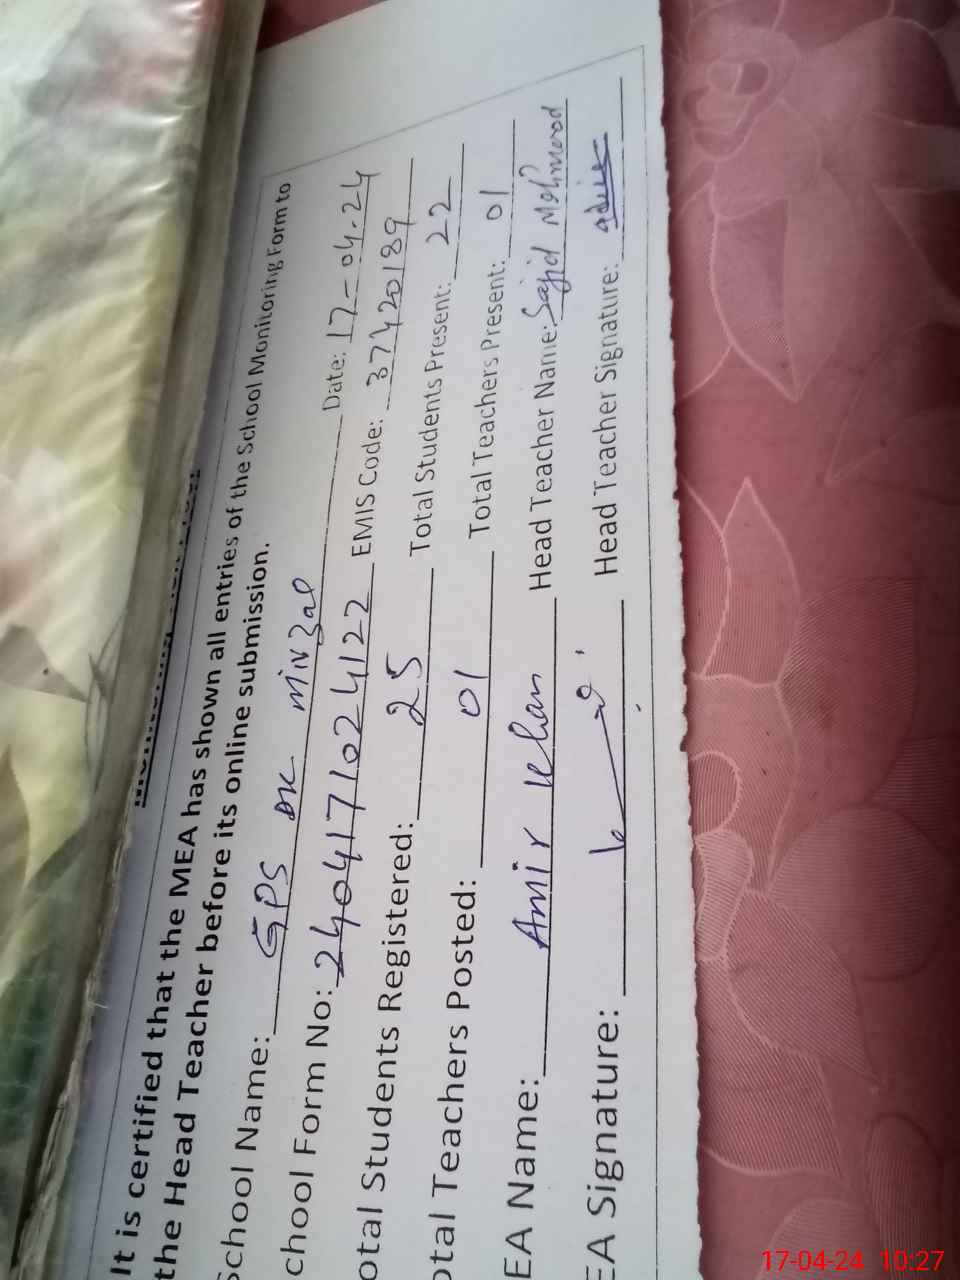 It is certified that the MEA has shown all entries of the School Monitoring Form to
the Head Teacher before its online submission.
School Name: GPS DK Minzal Date: 17-04-24
chool Form No: 2404171024122 EMIS Code: 37420189
otal Students Registered: 25 Total Students Present: 22
otal Teachers Posted: 01 Total Teachers Present: 01
EA Name: Amir Khan Head Teacher Name: Sajid Mehmood
EA Signature: Head Teacher Signature:
17-04-24 10:27